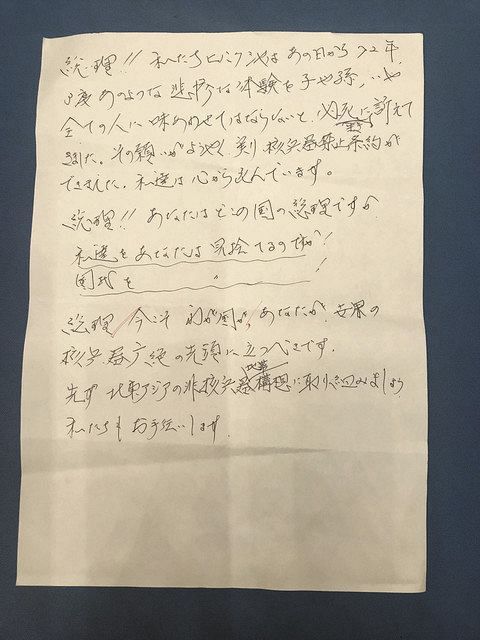 総理!! 私たちヒバクシャはあの日から72年、
2度あのような悲惨な体験を子や孫、いや
全ての人に味わわせてはならないと、必死に訴えて
きました。その願いがようやく実り核兵器禁止条約が
できました。私達は心から喜んでいます。
総理!! あなたはどこの国の総理ですか
私達をあなたは見捨てるのですか!
国民を 〃 !
総理 今こそ 我が国が、あなたが、世界の
核兵器廃絶の先頭に立つべきです。
先ず 北東アジアの非核兵器地帯構想に取り組みましょう
私たちもお手伝いします。